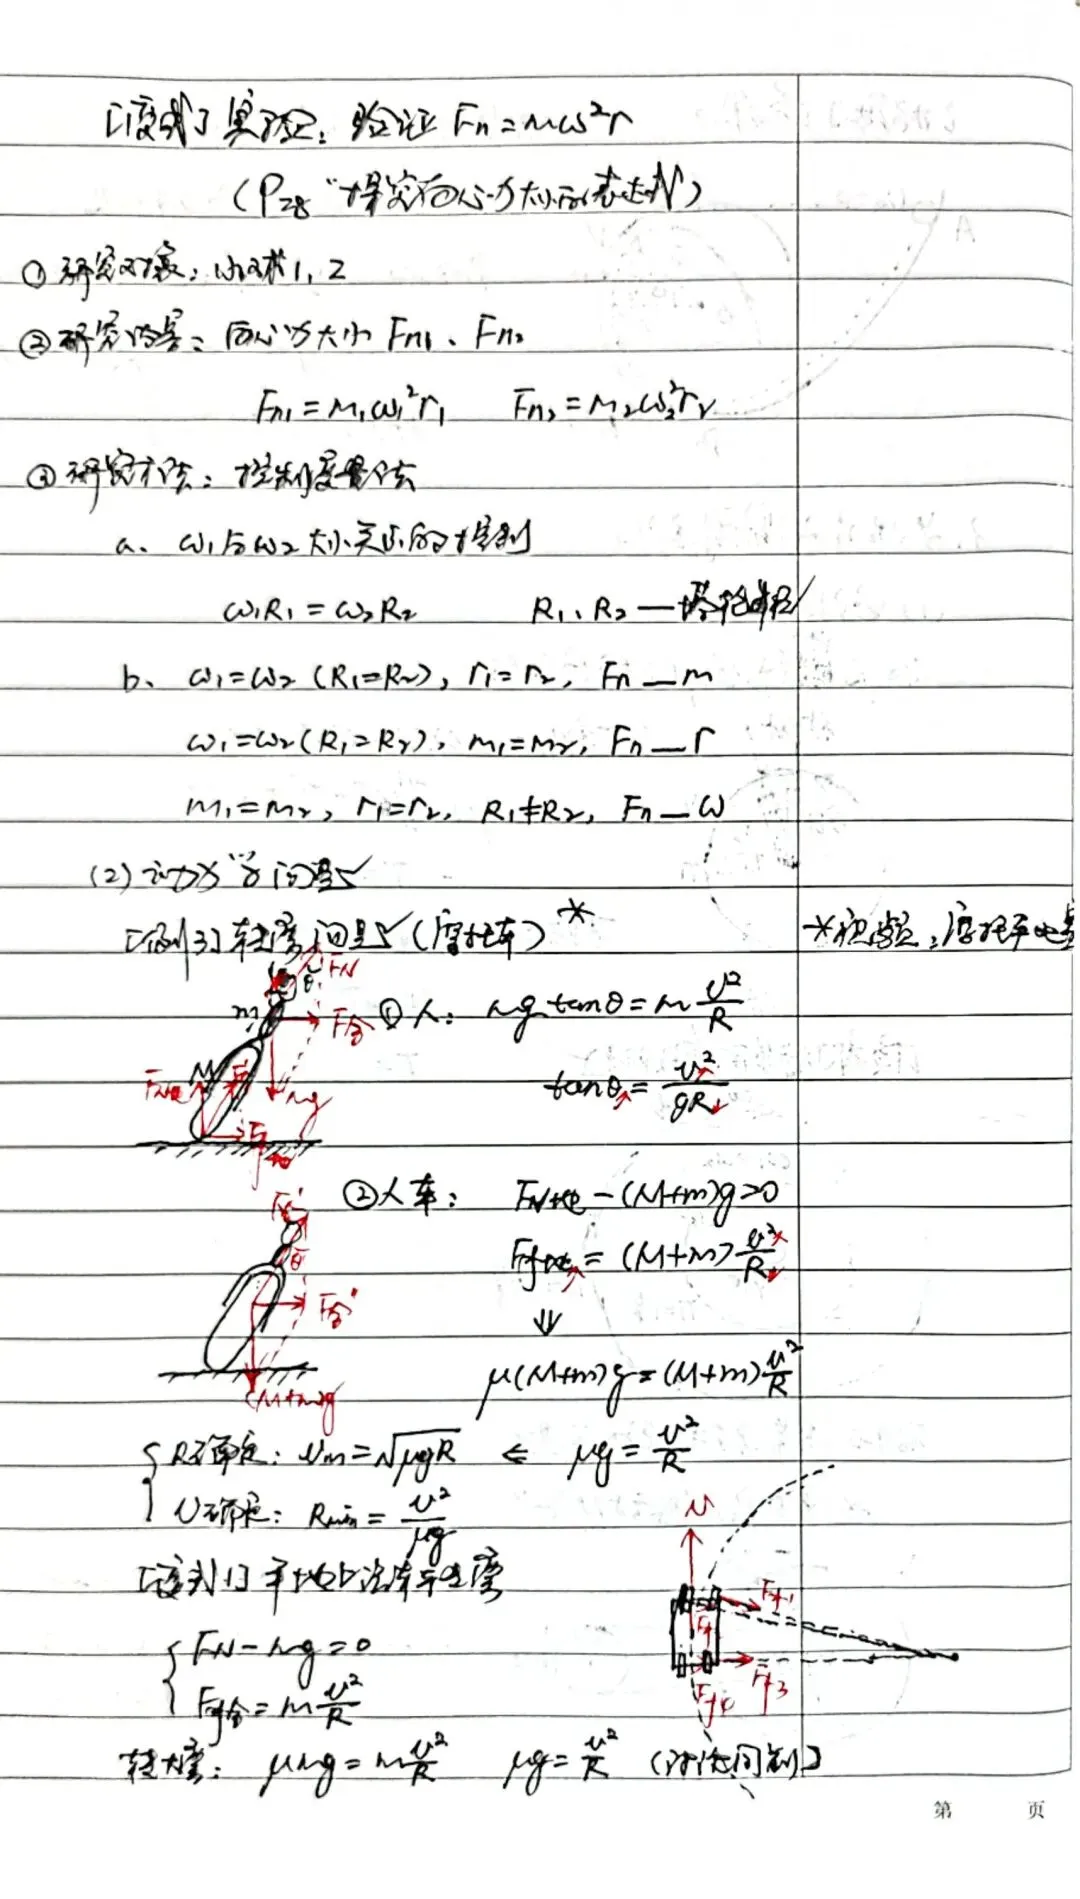 [演式] 实验：验证 Fn=mω²r
(P28 "探究向心力大小的表达式")
① 研究对象：小球1, 2
② 研究内容：向心力大小 Fn1、Fn2
Fn1=m1ω1²r1 Fn2=m2ω2²r2
③ 研究方法：控制变量法
a、ω1与ω2大小关系的控制
ω1R1=ω2R2 R1、R2—塔轮半径
b、ω1=ω2 (R1=R2), r1=r2, Fn—m
ω1=ω2 (R1=R2), m1=m2, Fn—r
m1=m2, r1=r2, R1≠R2, Fn—ω
(2) 动力学问题
[例3] 转弯问题 (摩托车) *
*视频：摩托车
FN θ m F合 mg M
① 人： mg tanθ = m v²/R
tanθ = v²/gR
② 人车： FN地-(M+m)g=0
Ff地=(M+m) v²/R
⇓
θ F合' (M+m)g
μ(M+m)g=(M+m) v²/R
R确定：vm=√μgR ⇐ μg=v²/R
v确定：Rmin=v²/μg
[变式1] 平地上汽车转弯
FN-mg=0
Ff合=m v²/R
v Ff1 Ff3
转弯： μmg=m v²/R μg=v²/R (同例)
第 页